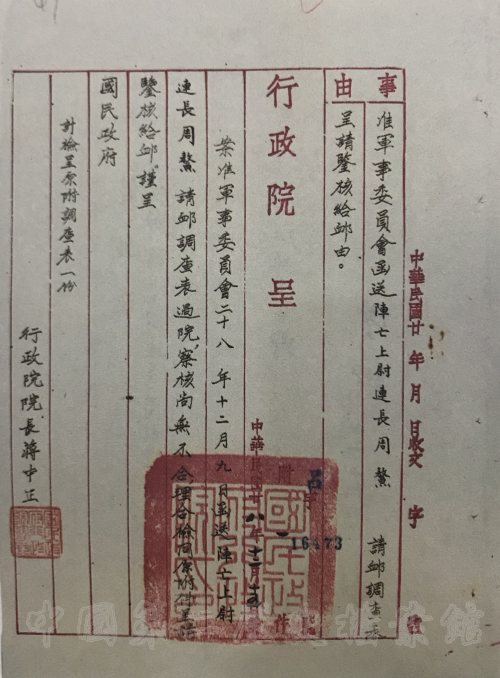 事由
准軍事委員會函送陣亡上尉連長周鰲 請卹調查表
呈請鑒核給卹由。
中華民國廿 年 月 日收文 字 號
行政院 呈
中華民國廿八年十二月十五
附
呂字
16473
件
案准軍事委員會二十八年十二月九日函送陣亡上尉
連長周鰲請卹調查表過院，察核尚無不合理合檢同原附件呈請
鑒核給卹。謹呈
國民政府
計檢呈原附調查表一份
行政院院長蔣中正
中國第二歷史檔案館